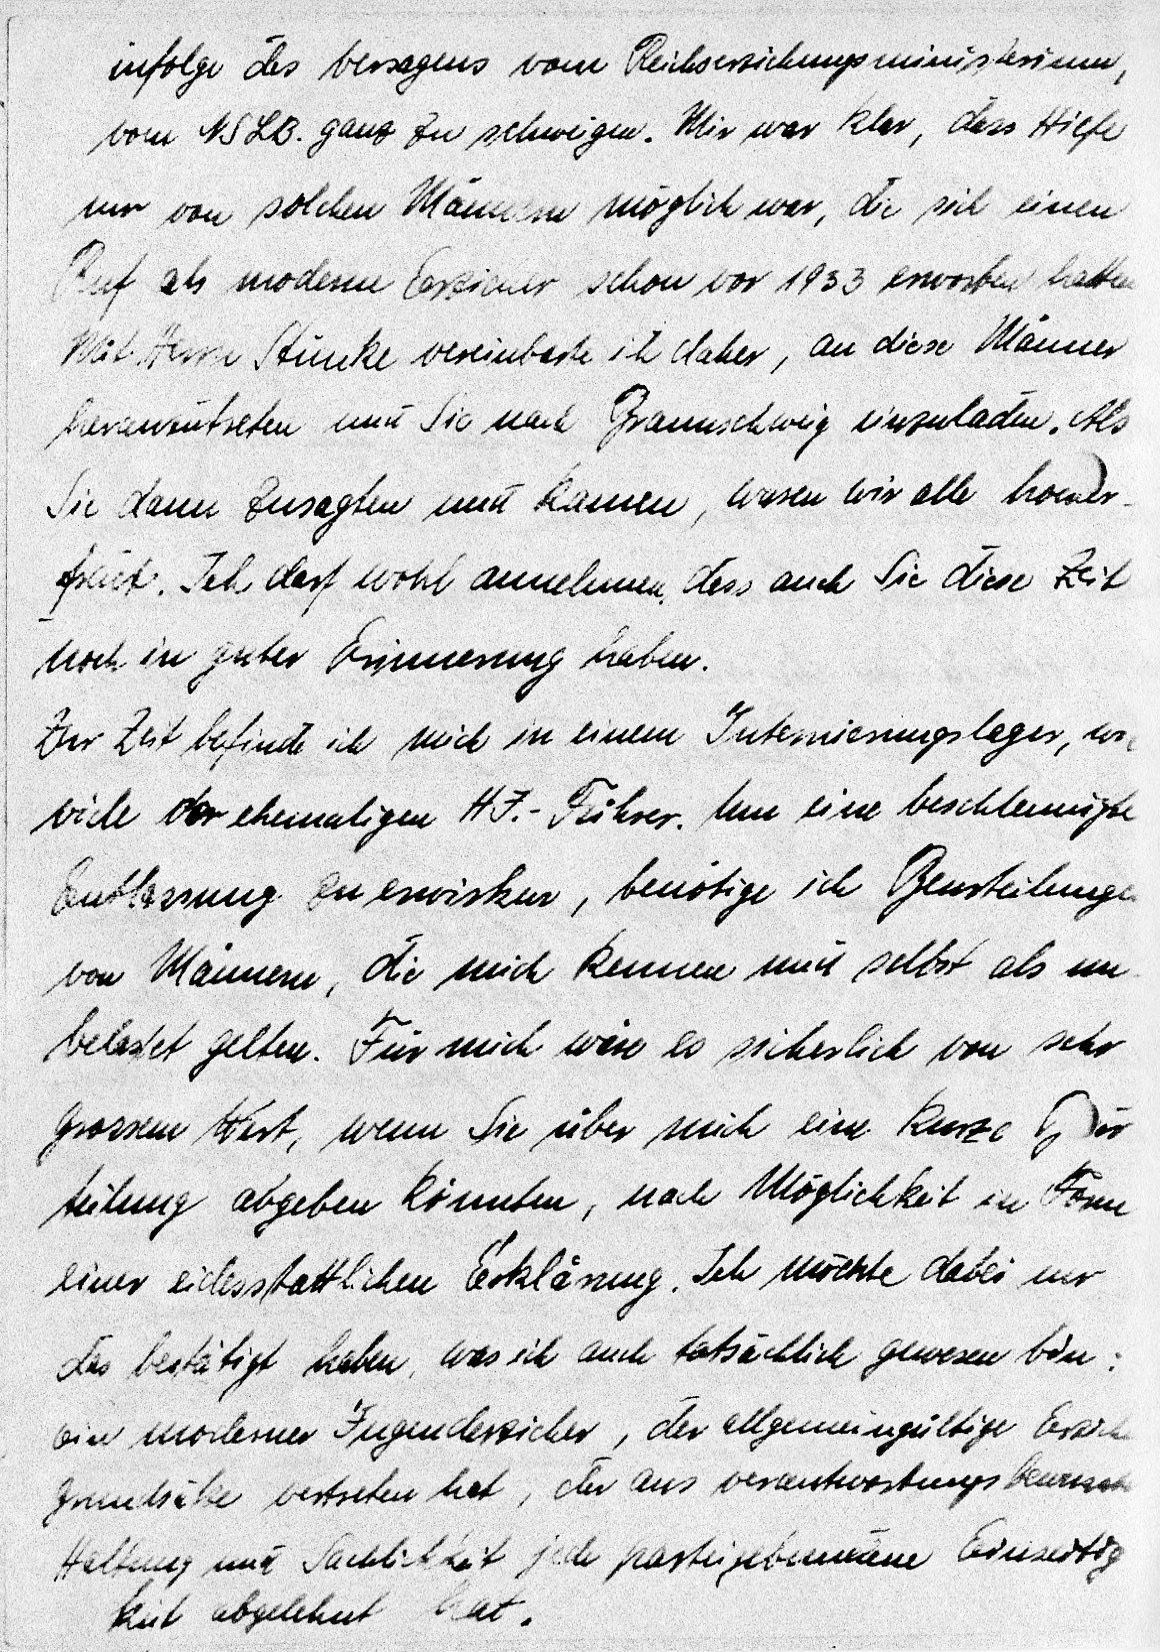 infolge des Versagens vom Reichserziehungsministerium,
vom NSLB. ganz zu schweigen. Mir war klar, dass Hilfe
nur von solchen Männern möglich war, die sich einen
Ruf als moderne Erzieher schon vor 1933 erworben hatten
Mit Herrn Stünke vereinbarte ich daher, an diese Männer
heranzutreten und Sie nach Braunschweig einzuladen. Als
Sie dann zusagten und kamen, waren wir alle hocher-
freut. Ich darf wohl annehmen, dass auch Sie diese Zeit
noch in guter Erinnerung haben.
Zur Zeit befinde ich mich in einem Internierungslager, wie
viele der ehemaligen HJ.-Führer. Um eine beschleunigte
Entlassung zu erwirken, benötige ich Beurteilungen
von Männern, die mich kennen und selbst als un-
belastet gelten. Für mich wäre es sicherlich von sehr
grossem Wert, wenn Sie über mich eine kurze Beur
teilung abgeben könnten, nach Möglichkeit in Form
einer eidesstattlichen Erklärung. Ich möchte dabei nur
das bestätigt haben, was ich auch tatsächlich gewesen bin:
ein moderner Jugenderzieher, der allgemeingültige Erzieh
grundsätze vertreten hat, der aus verantwortungsbewusster
Haltung und Sachlichkeit jede parteigebundene Einseitig
keit abgelehnt hat.